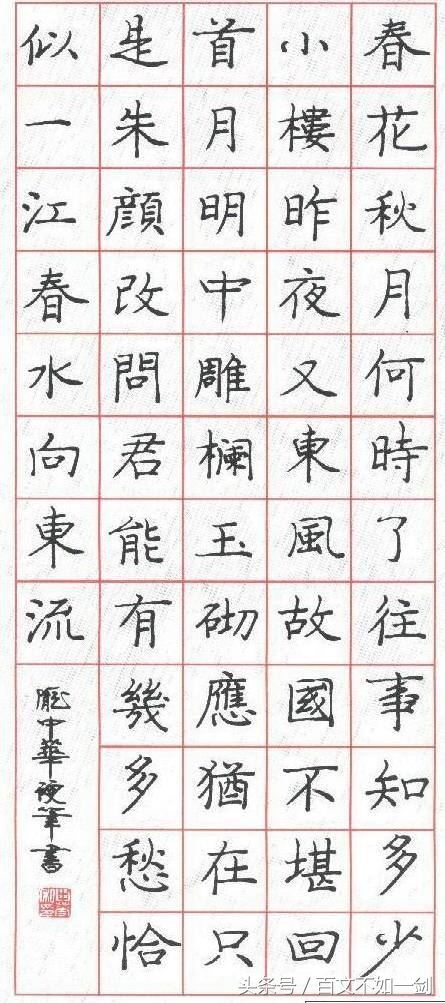 春花秋月何時了往事知多少
小樓昨夜又東風故國不堪回
首月明中雕欄玉砌應猶在只
是朱顔改問君能有幾多愁恰
似一江春水向東流
龐中華硬筆書
头条号 / 百文不如一剑